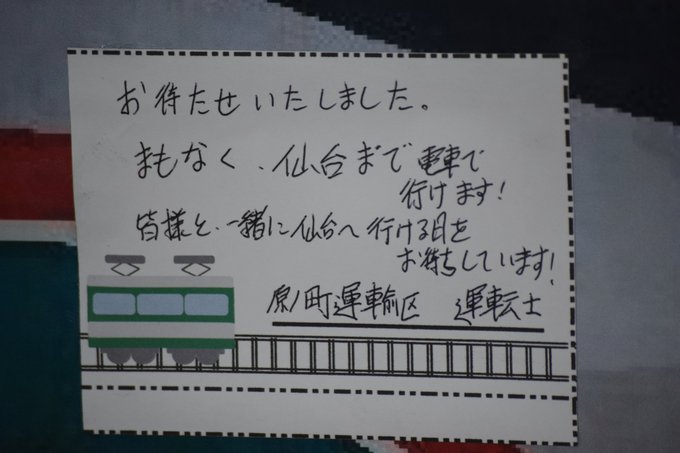 お待たせいたしました。
まもなく、仙台まで電車で
行けます!
皆様と、一緒に仙台へ行ける日を
お待ちしています!
原ノ町運輸区 運転士